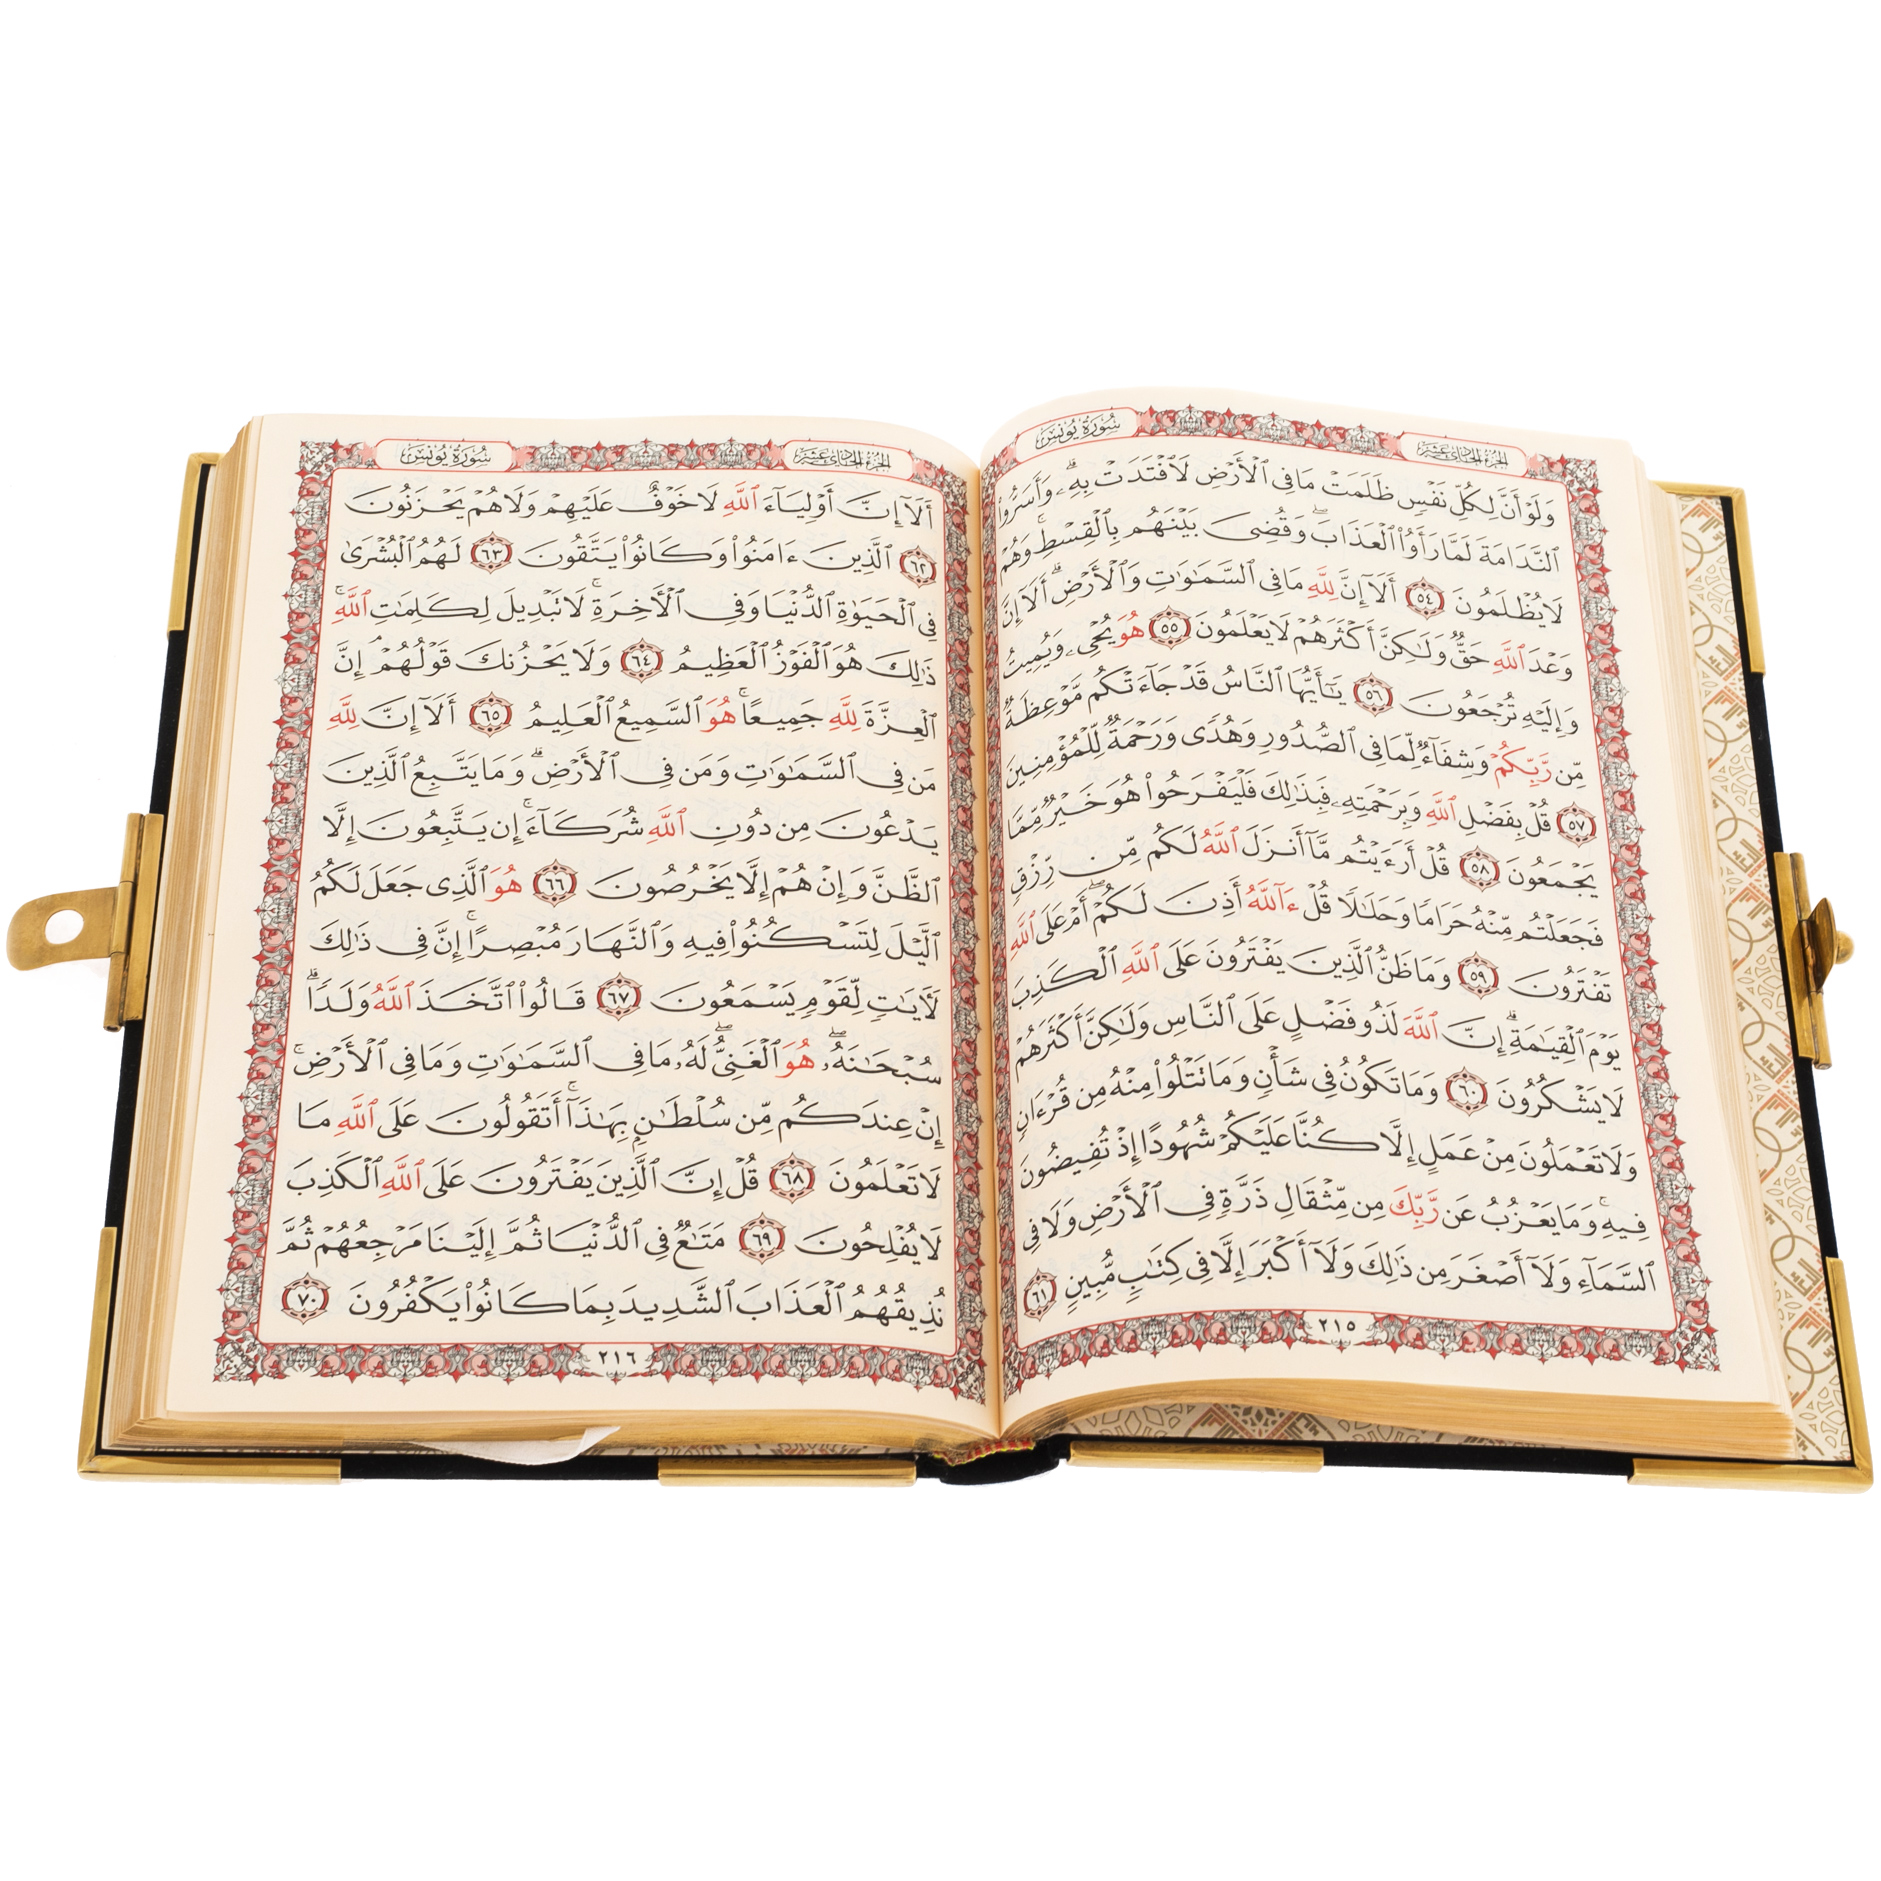 الجزء الحادي عشر
سورة يونس
وَلَوْ أَنَّ لِكُلِّ نَفْسٍ ظَلَمَتْ مَا فِي ٱلْأَرْضِ لَٱفْتَدَتْ بِهِۦۗ وَأَسَرُّوا۟
ٱلنَّدَامَةَ لَمَّا رَأَوُا۟ ٱلْعَذَابَۖ وَقُضِىَ بَيْنَهُم بِٱلْقِسْطِۚ وَهُمْ
لَا يُظْلَمُونَ ٥٤ أَلَآ إِنَّ لِلَّهِ مَا فِي ٱلسَّمَٰوَٰتِ وَٱلْأَرْضِۗ أَلَآ إِنَّ
وَعْدَ ٱللَّهِ حَقٌّ وَلَٰكِنَّ أَكْثَرَهُمْ لَا يَعْلَمُونَ ٥٥ هُوَ يُحْىِۦ وَيُمِيتُ
وَإِلَيْهِ تُرْجَعُونَ ٥٦ يَٰٓأَيُّهَا ٱلنَّاسُ قَدْ جَآءَتْكُم مَّوْعِظَةٌ
مِّن رَّبِّكُمْ وَشِفَآءٌ لِّمَا فِي ٱلصُّدُورِ وَهُدًى وَرَحْمَةٌ لِّلْمُؤْمِنِينَ
٥٧ قُلْ بِفَضْلِ ٱللَّهِ وَبِرَحْمَتِهِۦ فَبِذَٰلِكَ فَلْيَفْرَحُوا۟ هُوَ خَيْرٌ مِّمَّا
يَجْمَعُونَ ٥٨ قُلْ أَرَءَيْتُم مَّآ أَنزَلَ ٱللَّهُ لَكُم مِّن رِّزْقٍ
فَجَعَلْتُم مِّنْهُ حَرَامًا وَحَلَٰلًا قُلْ ءَآللَّهُ أَذِنَ لَكُمْۖ أَمْ عَلَى ٱللَّهِ
تَفْتَرُونَ ٥٩ وَمَا ظَنُّ ٱلَّذِينَ يَفْتَرُونَ عَلَى ٱللَّهِ ٱلْكَذِبَ
يَوْمَ ٱلْقِيَٰمَةِۗ إِنَّ ٱللَّهَ لَذُو فَضْلٍ عَلَى ٱلنَّاسِ وَلَٰكِنَّ أَكْثَرَهُمْ
لَا يَشْكُرُونَ ٦٠ وَمَا تَكُونُ فِي شَأْنٍ وَمَا تَتْلُوا۟ مِنْهُ مِن قُرْءَانٍ
وَلَا تَعْمَلُونَ مِنْ عَمَلٍ إِلَّا كُنَّا عَلَيْكُمْ شُهُودًا إِذْ تُفِيضُونَ
فِيهِۚ وَمَا يَعْزُبُ عَن رَّبِّكَ مِن مِّثْقَالِ ذَرَّةٍ فِي ٱلْأَرْضِ وَلَا فِي
ٱلسَّمَآءِ وَلَآ أَصْغَرَ مِن ذَٰلِكَ وَلَآ أَكْبَرَ إِلَّا فِي كِتَٰبٍ مُّبِينٍ ٦١
٢١٥
الجزء الحادي عشر
سورة يونس
أَلَآ إِنَّ أَوْلِيَآءَ ٱللَّهِ لَا خَوْفٌ عَلَيْهِمْ وَلَا هُمْ يَحْزَنُونَ
٦٢ ٱلَّذِينَ ءَامَنُوا۟ وَكَانُوا۟ يَتَّقُونَ ٦٣ لَهُمُ ٱلْبُشْرَىٰ
فِي ٱلْحَيَوٰةِ ٱلدُّنْيَا وَفِي ٱلْءَاخِرَةِۚ لَا تَبْدِيلَ لِكَلِمَٰتِ ٱللَّهِۚ
ذَٰلِكَ هُوَ ٱلْفَوْزُ ٱلْعَظِيمُ ٦٤ وَلَا يَحْزُنكَ قَوْلُهُمْۘ إِنَّ
ٱلْعِزَّةَ لِلَّهِ جَمِيعًاۚ هُوَ ٱلسَّمِيعُ ٱلْعَلِيمُ ٦٥ أَلَآ إِنَّ لِلَّهِ
مَن فِي ٱلسَّمَٰوَٰتِ وَمَن فِي ٱلْأَرْضِۗ وَمَا يَتَّبِعُ ٱلَّذِينَ
يَدْعُونَ مِن دُونِ ٱللَّهِ شُرَكَآءَۚ إِن يَتَّبِعُونَ إِلَّا
ٱلظَّنَّ وَإِنْ هُمْ إِلَّا يَخْرُصُونَ ٦٦ هُوَ ٱلَّذِى جَعَلَ لَكُمُ
ٱلَّيْلَ لِتَسْكُنُوا۟ فِيهِ وَٱلنَّهَارَ مُبْصِرًاۚ إِنَّ فِي ذَٰلِكَ
لَءَايَٰتٍ لِّقَوْمٍ يَسْمَعُونَ ٦٧ قَالُوا۟ ٱتَّخَذَ ٱللَّهُ وَلَدًاۗ
سُبْحَٰنَهُۥۖ هُوَ ٱلْغَنِىُّۖ لَهُۥ مَا فِي ٱلسَّمَٰوَٰتِ وَمَا فِي ٱلْأَرْضِۚ
إِنْ عِندَكُم مِّن سُلْطَٰنٍۭ بِهَٰذَآۚ أَتَقُولُونَ عَلَى ٱللَّهِ مَا
لَا تَعْلَمُونَ ٦٨ قُلْ إِنَّ ٱلَّذِينَ يَفْتَرُونَ عَلَى ٱللَّهِ ٱلْكَذِبَ
لَا يُفْلِحُونَ ٦٩ مَتَٰعٌ فِي ٱلدُّنْيَا ثُمَّ إِلَيْنَا مَرْجِعُهُمْ ثُمَّ
نُذِيقُهُمُ ٱلْعَذَابَ ٱلشَّدِيدَ بِمَا كَانُوا۟ يَكْفُرُونَ ٧٠
٢١٦